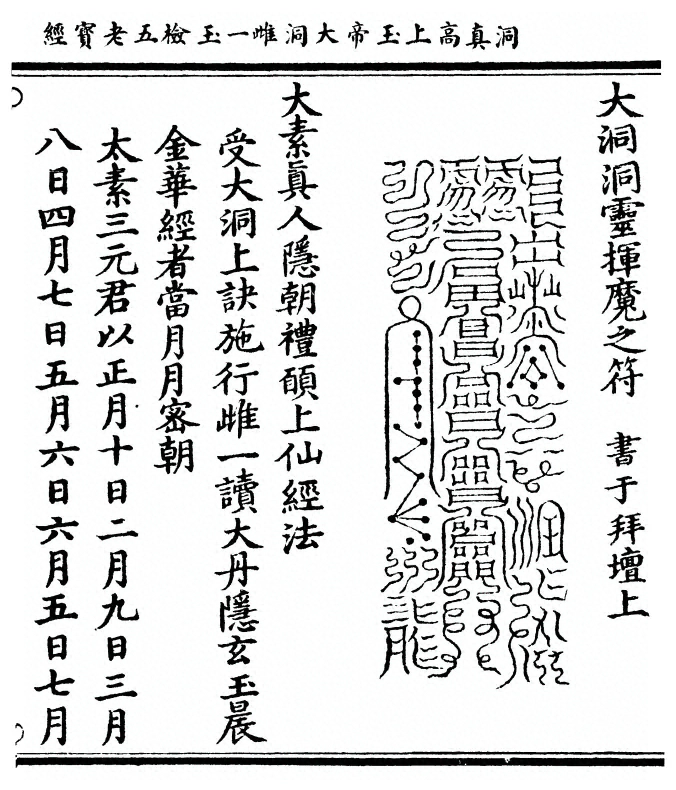 洞真高上玉帝大洞雌一玉檢五老寶經
大洞洞靈揮魔之符　書于拜壇上
大素眞人隱朝禮頙上仙經法
受大洞上訣施行雌一讀大丹隱玄玉晨
金華經者當月月密朝
太素三元君以正月十日二月九日三月
八日四月七日五月六日六月五日七月